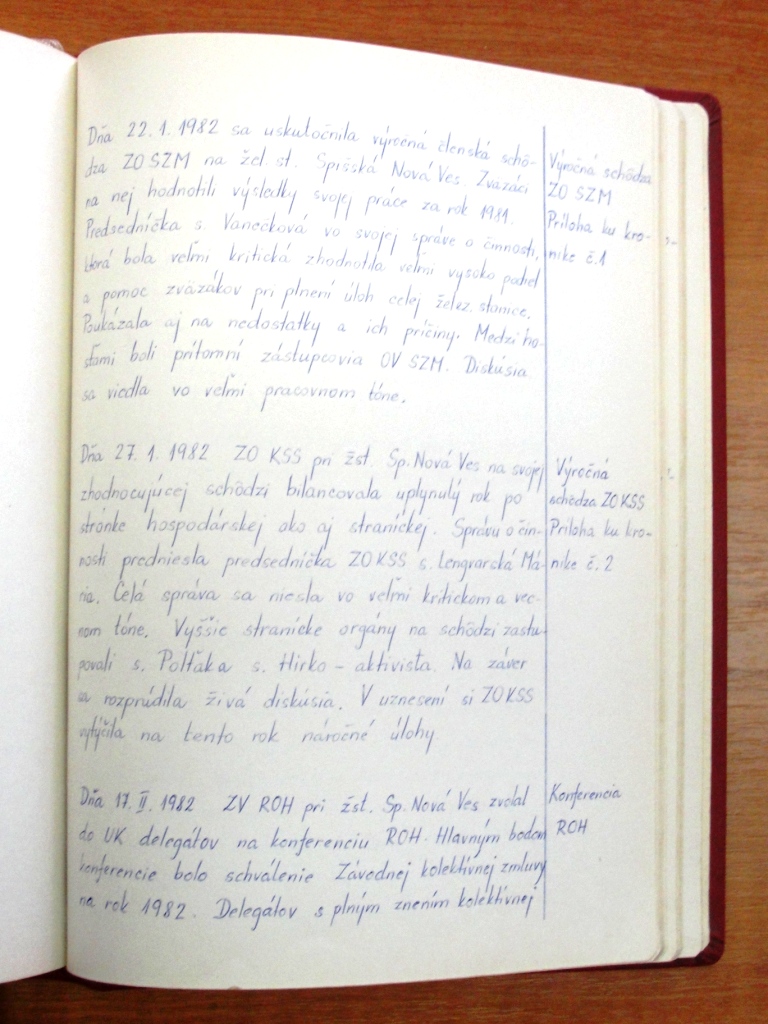 Dňa 22.1.1982 sa uskutočnila výročná členská schô-
dza ZO SZM na žel. st. Spišská Nová Ves. Zväzáci
na nej hodnotili výsledky svojej práce za rok 1981.
Predsedníčka s. Vanečková vo svojej správe o činnosti,
ktorá bola veľmi kritická zhodnotila veľmi vysoko podiel
a pomoc zväzákov pri plnení úloh celej želez. stanice.
Poukázala aj na nedostatky a ich príčiny. Medzi ho-
sťami boli prítomní zástupcovia OV SZM. Diskúsia
sa viedla vo veľmi pracovnom tóne.
Výročná schôdza
ZO SZM
Príloha ku kro-
nike č.1
Dňa 27.1.1982 ZO KSS pri žst. Sp. Nová Ves na svojej
zhodnocujúcej schôdzi bilancovala uplynulý rok po
stránke hospodárskej ako aj straníckej. Správu o čin-
nosti predniesla predsedníčka ZO KSS s. Lengvarská Má-
ria. Celá správa sa niesla vo veľmi kritickom a vec-
nom tóne. Vyššie stranícke orgány na schôdzi zastu-
povali s. Polťáka s. Hirko - aktivista. Na záver
sa rozprúdila živá diskúsia. V uznesení si ZO KSS
vytýčila na tento rok náročné úlohy
Výročná
schôdza ZO KSS
Príloha ku kro-
nike č. 2
Dňa 17. II. 1982 ZV ROH pri žst. Sp. Nová Ves zvolal
do UK delegátov na konferenciu ROH. Hlavným bodom
konferencie bolo schválenie Závodnej kolektívnej zmluvy
na rok 1982. Delegátov s plným znením kolektívnej
Konferencia
ROH